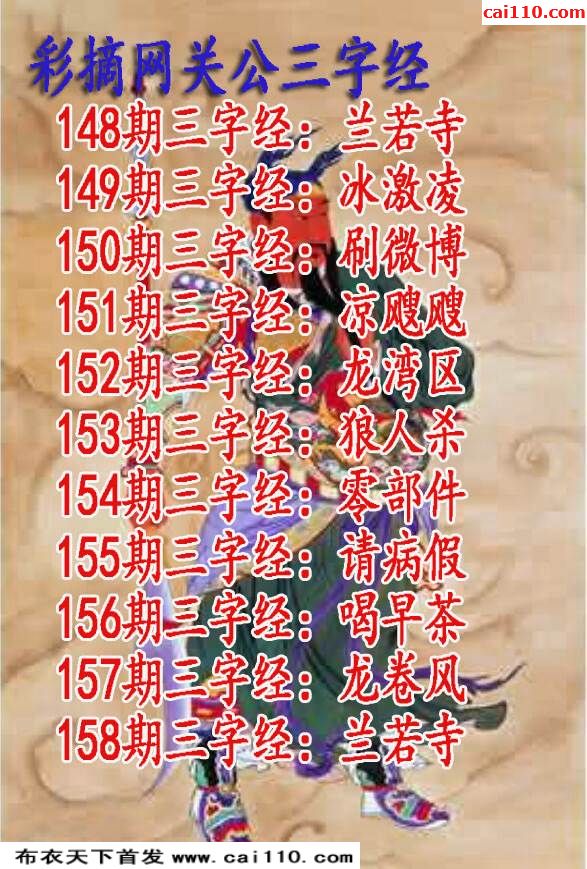 cai110.com
彩摘网关公三字经
148期三字经：兰若寺
149期三字经：冰激凌
150期三字经：刷微博
151期三字经：凉飕飕
152期三字经：龙湾区
153期三字经：狼人杀
154期三字经：零部件
155期三字经：请病假
156期三字经：喝早茶
157期三字经：龙卷风
158期三字经：兰若寺
布衣天下首发 www.cai110.com